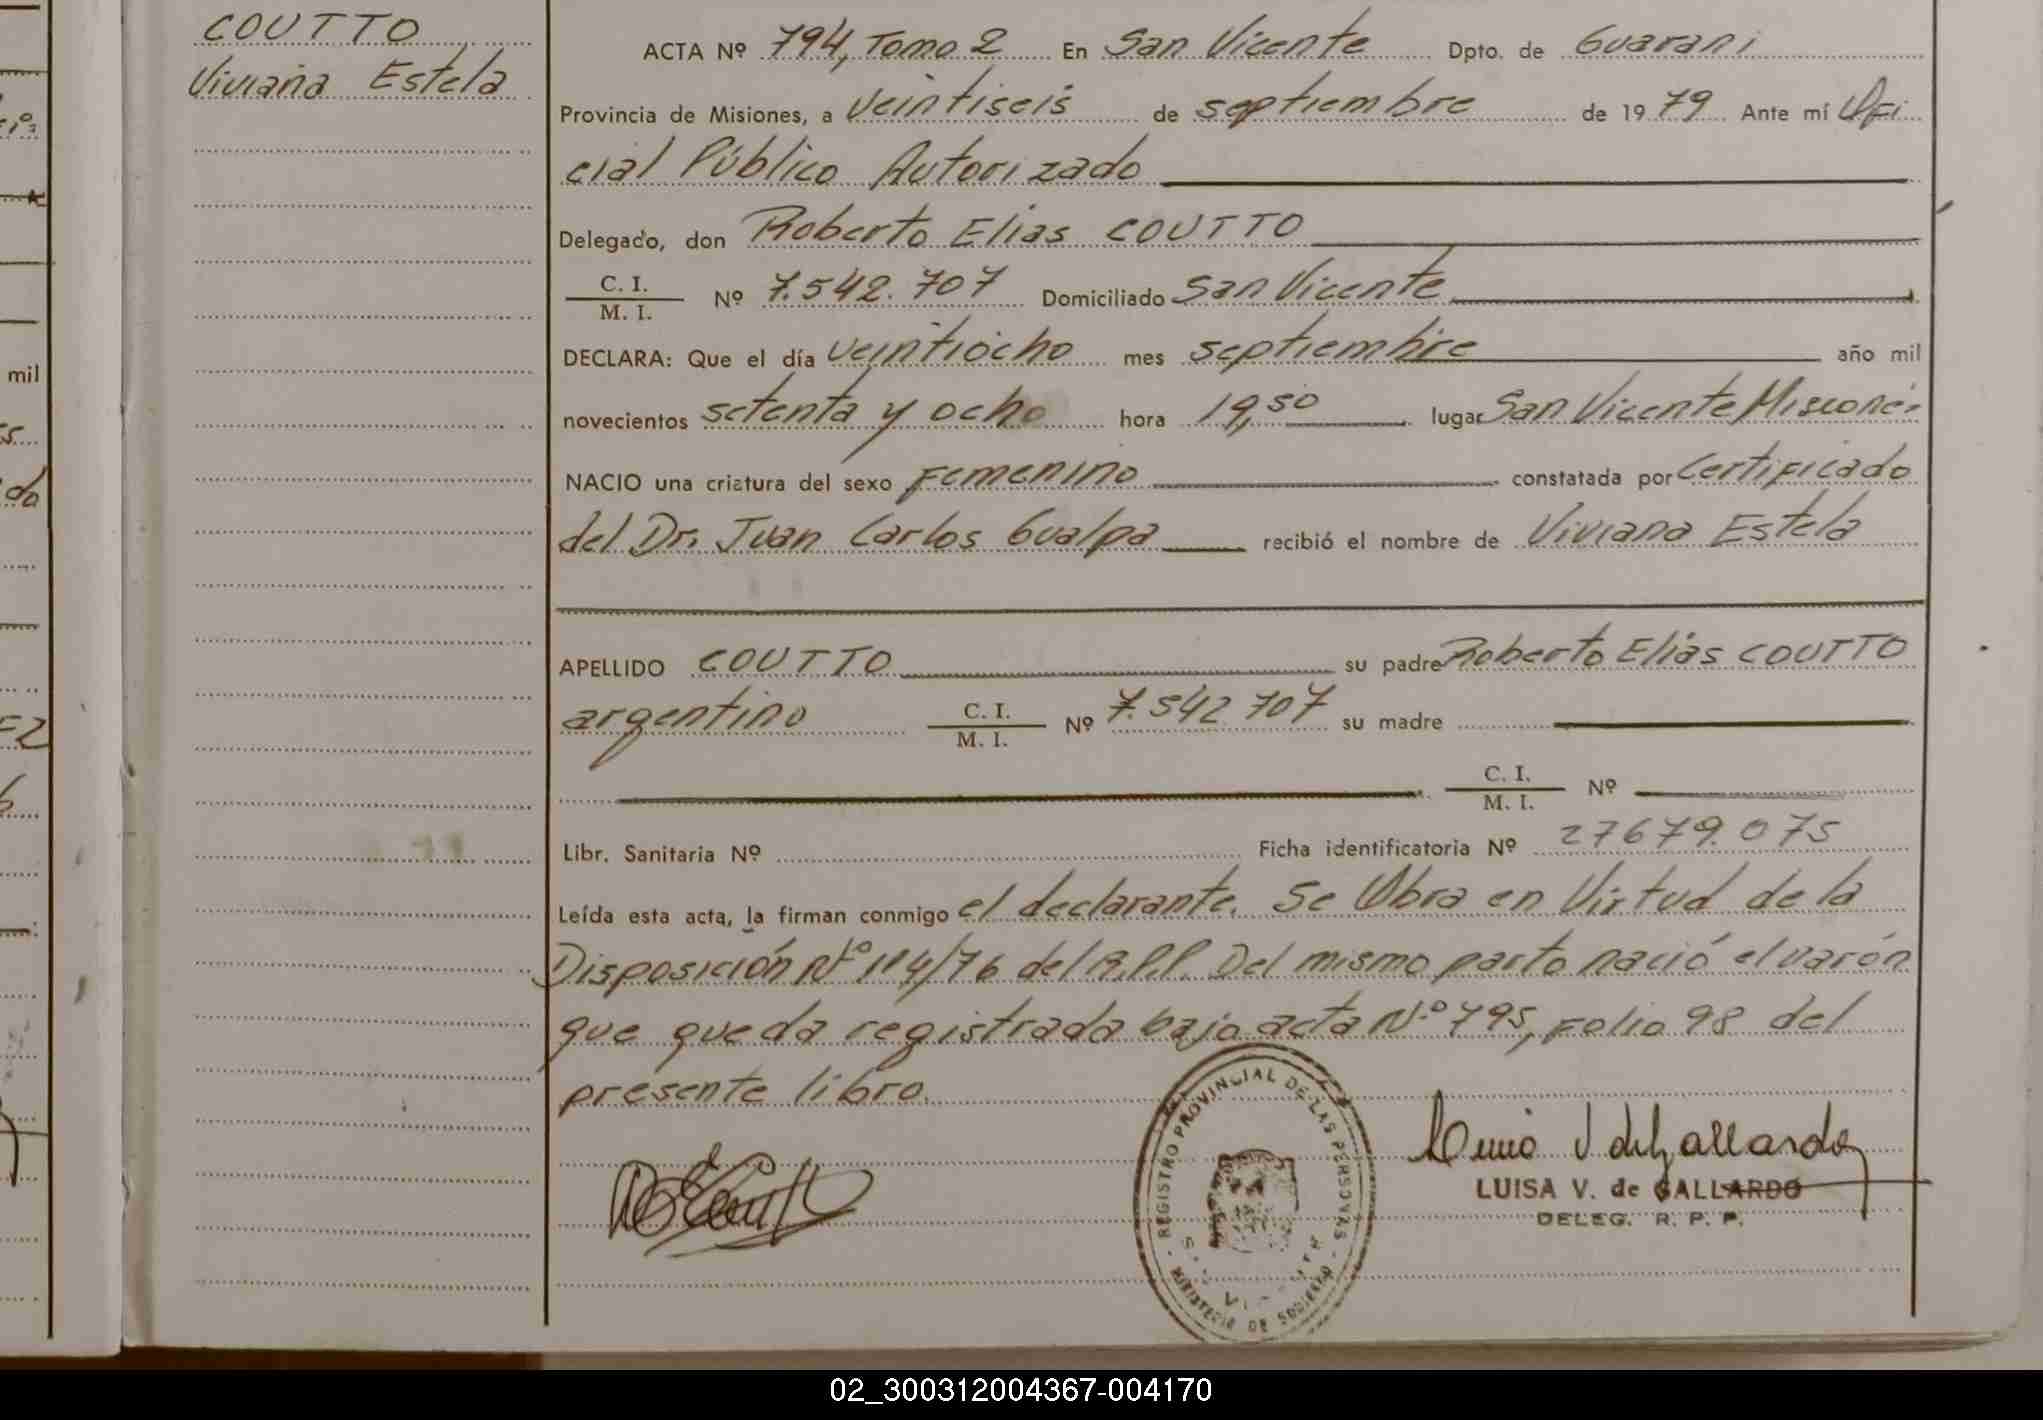 COUTTO
Viviana Estela
ACTA Nº 794, Tomo 2 En San Vicente Dpto. de Guarani
Provincia de Misiones, a veintiseis de septiembre de 1979 Ante mí Ofi
cial Público Autorizado
Delegado, don Roberto Elias COUTTO
C. I.
M. I. Nº 7.542.707 Domiciliado San Vicente
DECLARA: Que el día veintiocho mes septiembre año mil
novecientos setenta y ocho hora 19,50 lugar San Vicente Misiones
NACIO una criatura del sexo Femenino constatada por Certificado
del Dr. Juan Carlos Gualpa recibió el nombre de Viviana Estela
APELLIDO COUTTO su padre Roberto Elias COUTTO
argentino C. I.
M. I. Nº 7.542.707 su madre
C. I.
M. I. Nº
Libr. Sanitaria Nº Ficha identificatoria Nº 27679.075
Leída esta acta, la firman conmigo el declarante. Se Obra en Virtud de la
Disposición Nº 114/76 del R.P.P. Del mismo parto nació el varón
que queda registrado bajo acta Nº 795, Folio 98 del
presente libro.
REGISTRO PROVINCIAL DE LAS PERSONAS
MINISTERIO DE GOBIERNO
LUISA V. de GALLARDO
DELEG. R. P. P.
mil
do
02_300312004367-004170